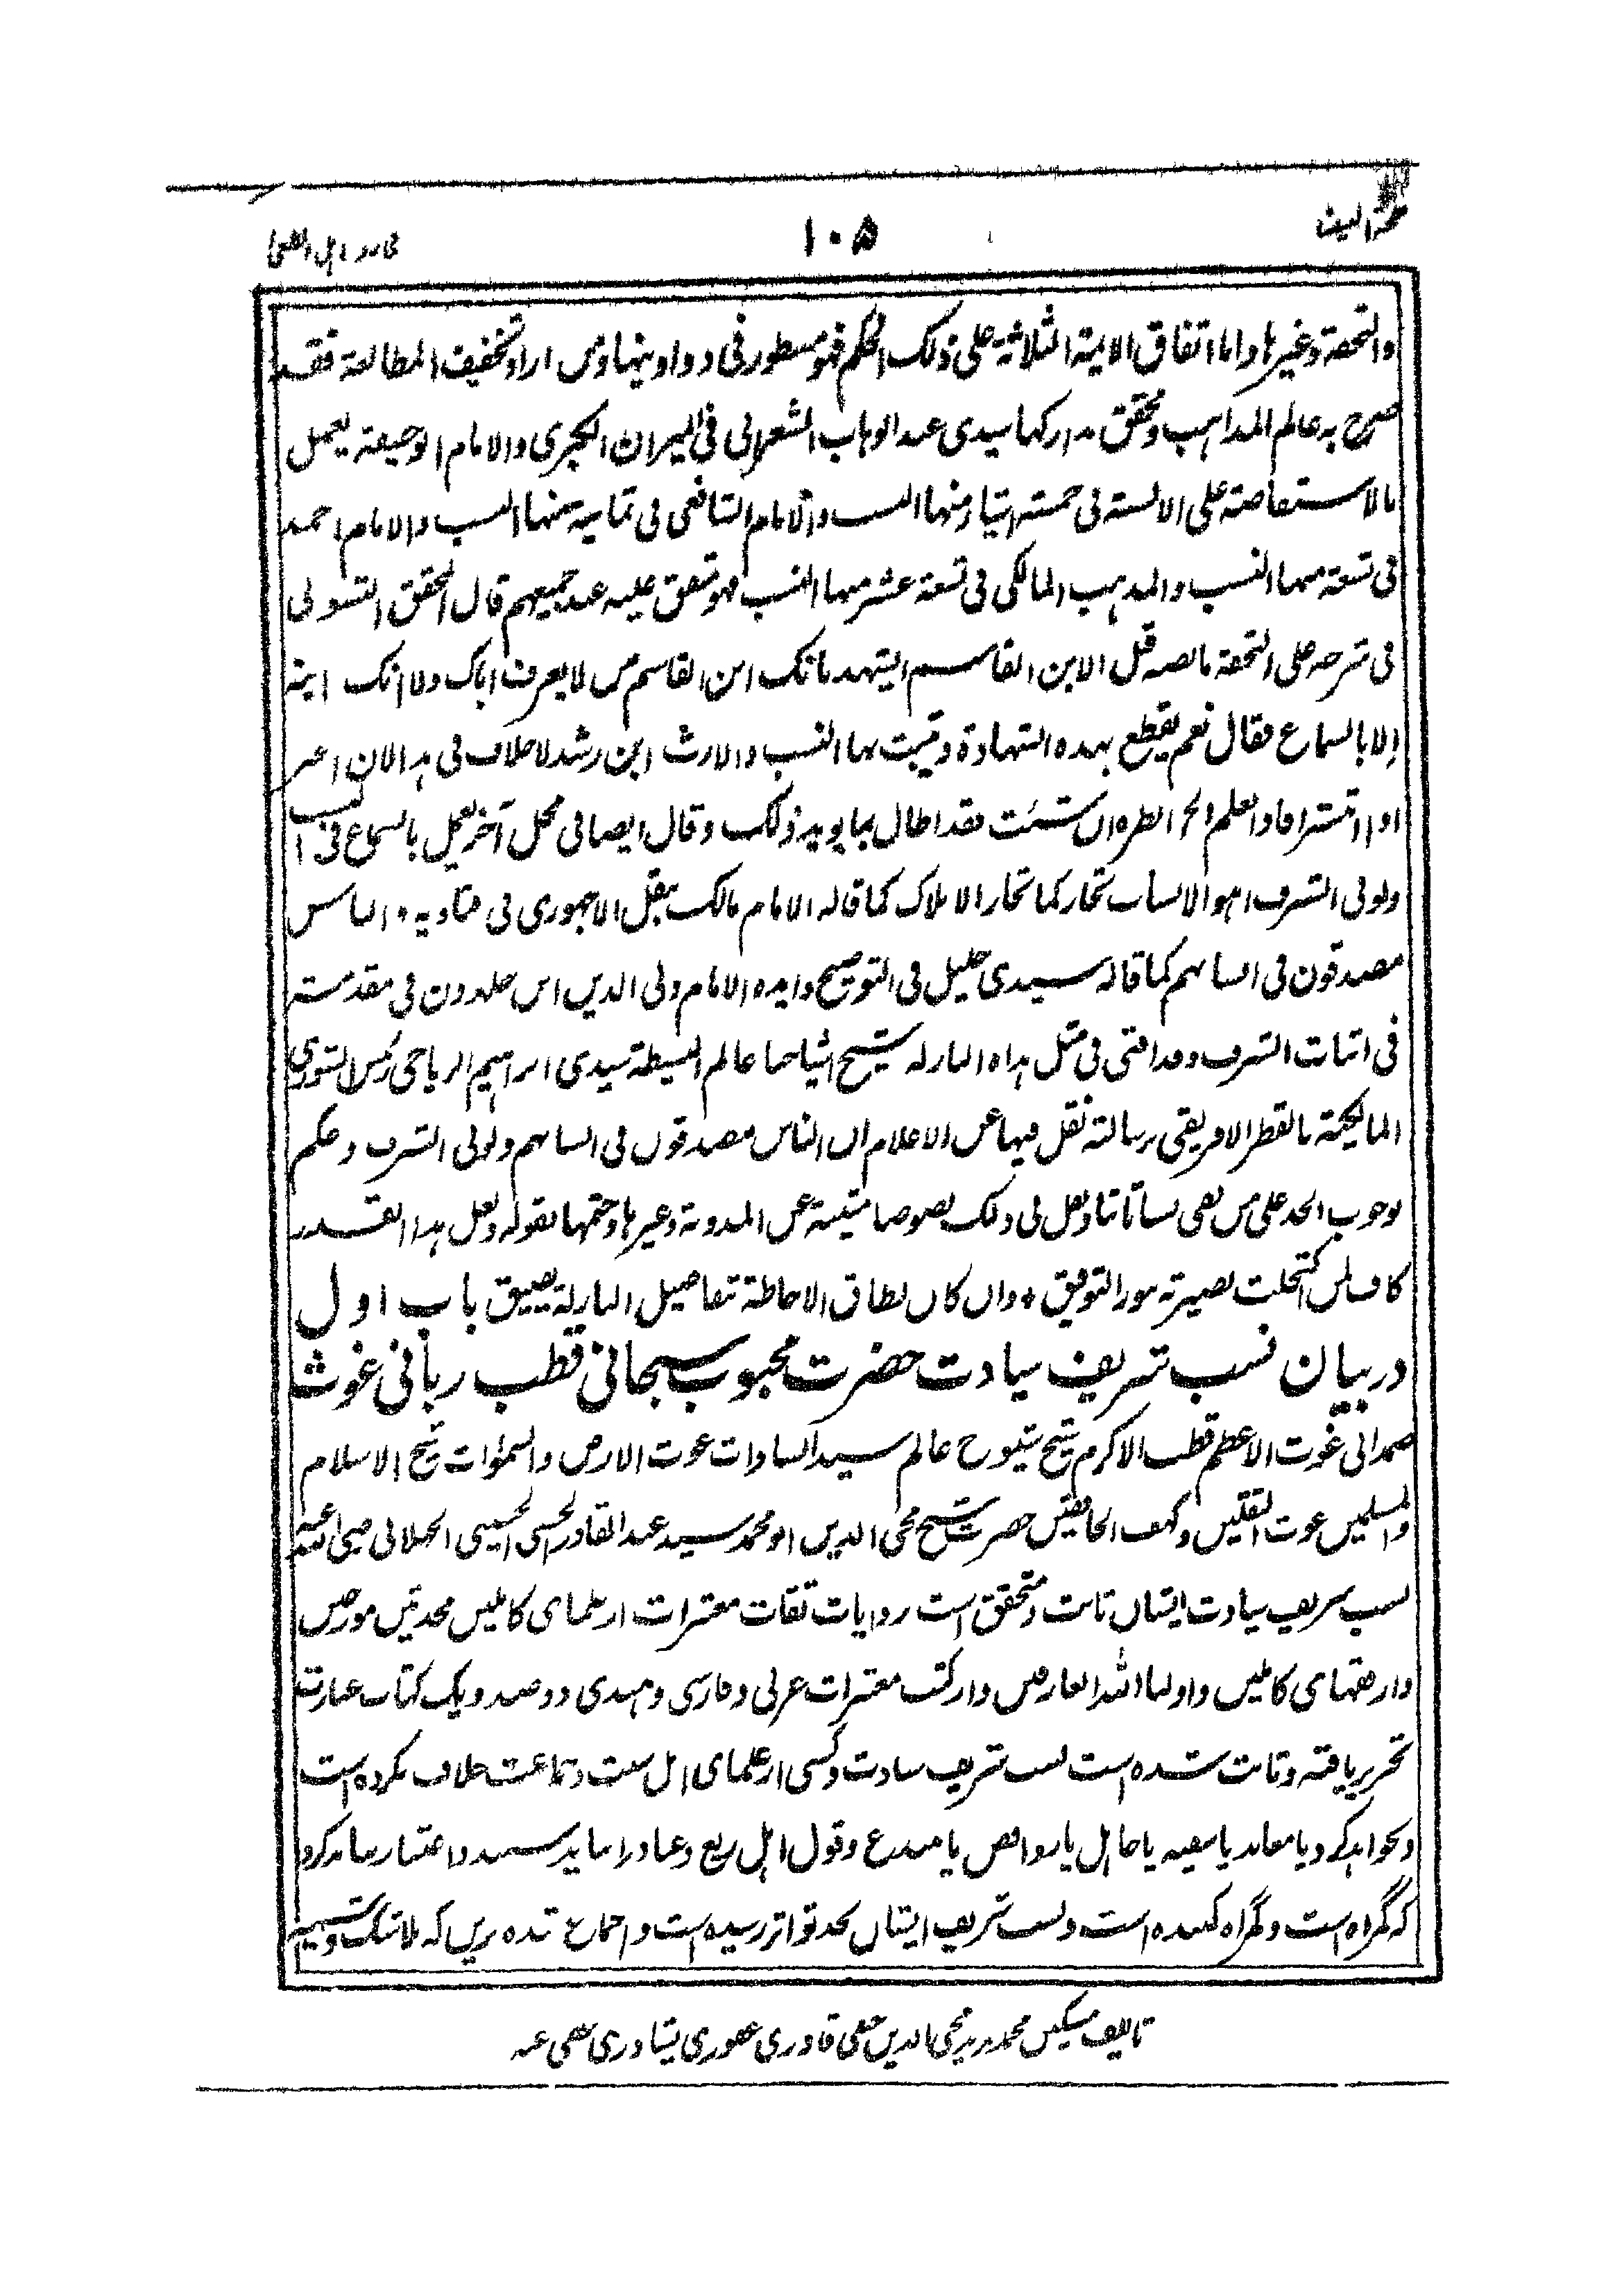 ۱۰۵
والتحفة وغیرہا واما اتفاق الایمة الثلاثة علی ذلک الحکم فهو مسطور فی دواوینها ومن اراد تخفیف المطالعة فقد
صرح به عالم المذاہب ومحقق مدارکها سیدی عبد الوہاب الشعرانی فی المیزان الکبری والامام ابو حنیفة یعمل
بالاستفاضة علی الالسنة فی خمسة اشیاء منها النسب والامام الشافعی فی ثمانیة منها النسب والامام احمد
فی تسعة منها النسب والمذہب المالکی فی تسعة عشر منها النسب فهو متفق علیه عند جمیعهم قال المحقق التسولی
فی شرحه علی التحفة ما نصه قیل لابن القاسم ایشهد بانک ابن القاسم من لا یعرف اباک ولا انک ابنه
الا بالسماع فقال نعم یقطع بهذه الشهادة ویثبت بها النسب والارث ابن رشد لا خلاف فی ہذا لان الخبر
اذا انتشر افاد العلم الخ انظره ان شئت فقد اطال بما یوید ذلک وقال ایضا فی محل آخر یعمل بالسماع فی النسب
ولو فی الشرف اہو الانساب تحاز کما تحاز الاملاک کما قاله الامام مالک بنقل الاجهوری فی فتاویه ٭ الناس
مصدقون فی انسابهم کما قاله سیدی خلیل فی التوضیح وایده الامام ولی الدین ابن خلدون فی مقدمته
فی اثبات الشرف وقد افتی فی مثل ہذه النازلة شیخ اشیاخنا عالم البسیطة سیدی ابراہیم الریاحی رئیس الشوری
المالکیة بالقطر الافریقی برسالة نقل فیها عن الاعلام ان الناس مصدقون فی انسابهم ولو فی الشرف وحکم
بوجوب الحد علی من نفی نسبا ثابتا ونقل فی ذلک نصوصا متینة عن المدونة وغیرہا وختمها بقوله ولعل ہذا القدر
کاف لمن اکتحلت بصیرته بنور التوفیق ٭ وان کان نطاق الاحاطة بتفاصیل النازلة یضیق باب اول
در بیان نسب شریف سیادت حضرت محبوب سبحانی قطب ربانی غوث
صمدانی غوث الاعظم قطب الاکرم شیخ شیوخ عالم سید السادات غوث الارض والسموات شیخ الاسلام
والمسلمین غوث الثقلین وکهف الخافقین حضرت شیخ محی الدین ابو محمد سید عبد القادر الحسنی الحسینی الجیلانی رضی الله عنه
نسب شریف سیادت ایشان ثابت ومتحقق است بروایات ثقات معتبرات از علمای کاملین محدثین مورخین
واز فقهای کاملین واولیاء الله العارفین واز کتب معتبرات عربی وفارسی وہندی دو صد ویک کتاب عبارت
تحریر یافته وثابت شده است نسب شریف سادت وکسی از علمای اہل سنت وجماعت خلاف نکرده است
ونخواہد کرد ویا معاند یا سفیه یا جاہل یا روافض یا مبتدع وقول اہل زیغ وعناد را نباید شنید واعتبار نباید کرد
که گمراه است وگمراه کننده است ونسب شریف ایشان بحد تواتر رسیده است واجماع شده برین که بلا شک وشبه
تالیف مسکین محمد بدر محی الدین حنفی قادری غفوری پشاوری عفی عنه